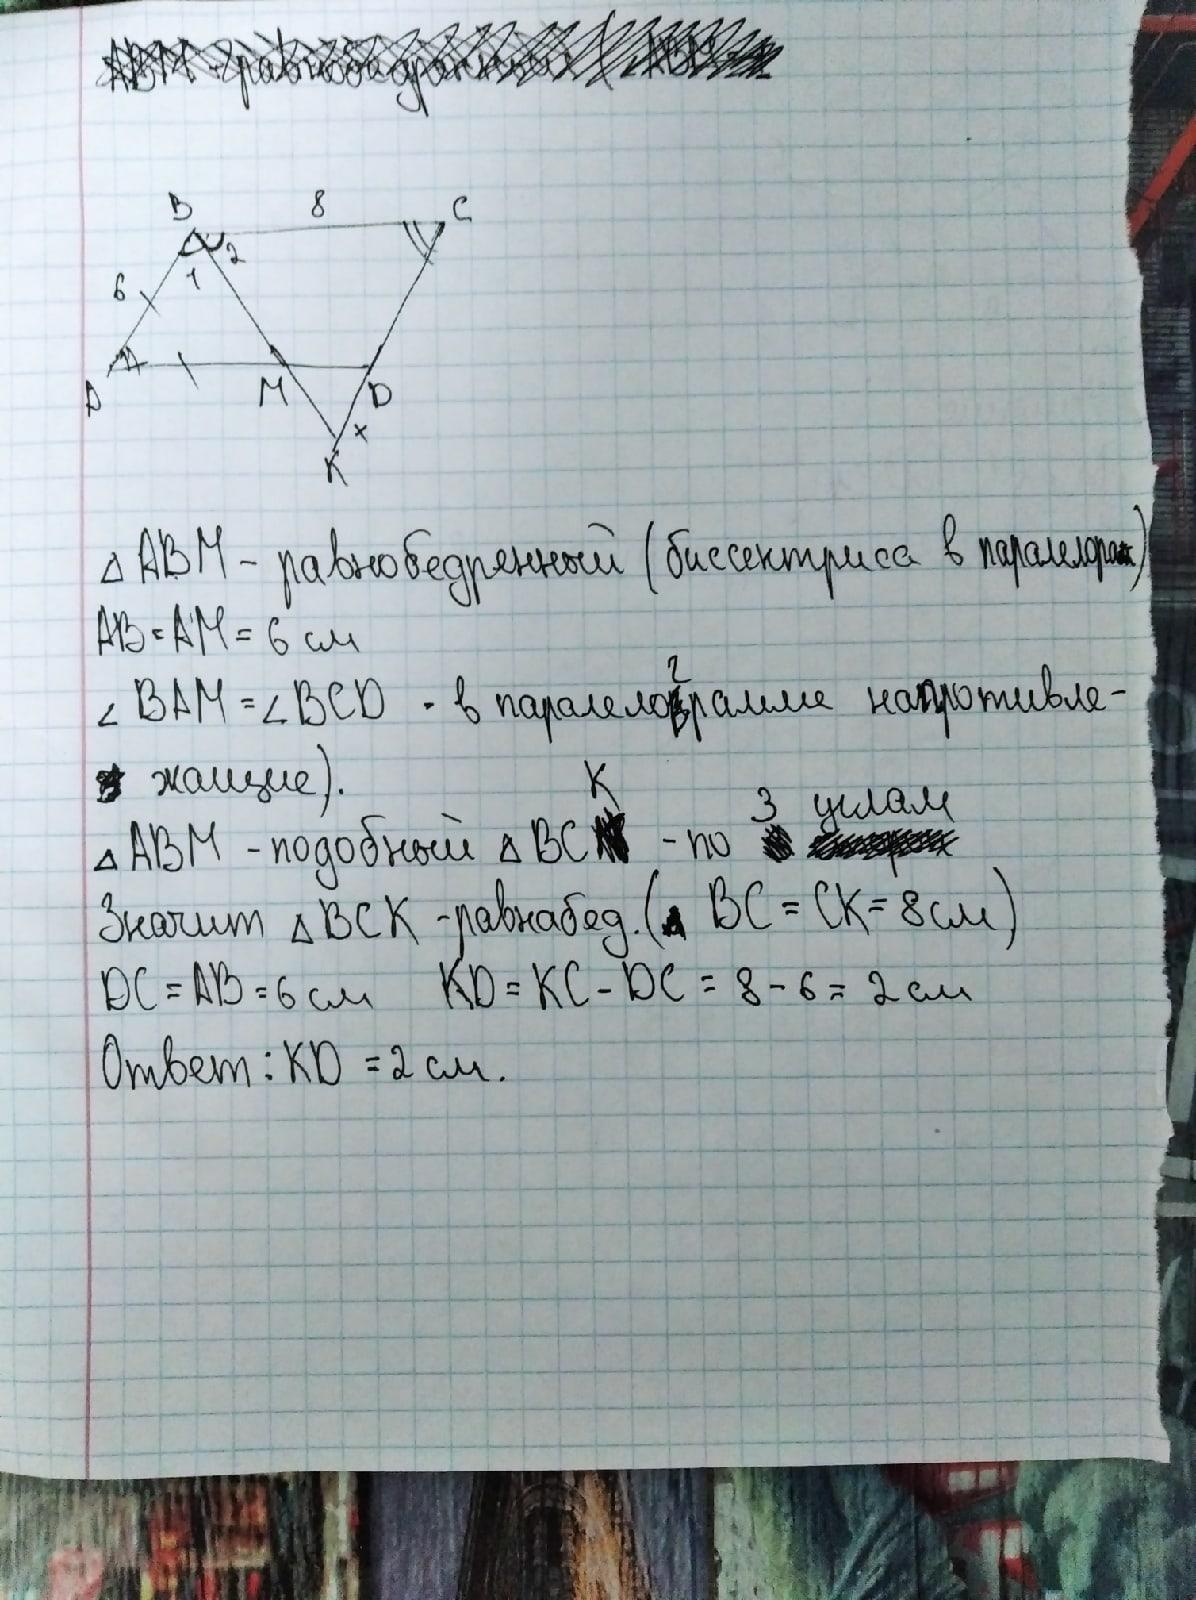 B 8 C
2
6 1
A M D
x
K
△ ABM - равнобедренный (биссектриса в паралелограм)
AB = AM = 6 см
∠ BAM = ∠ BCD - в паралелограмме напротивле-
жащие).
△ ABM - подобный △ BCK - по 3 углам
Значит △ BCK - равнабед. ( BC = CK = 8 см)
DC = AB = 6 см KD = KC - DC = 8 - 6 = 2 см
Ответ: KD = 2 см.